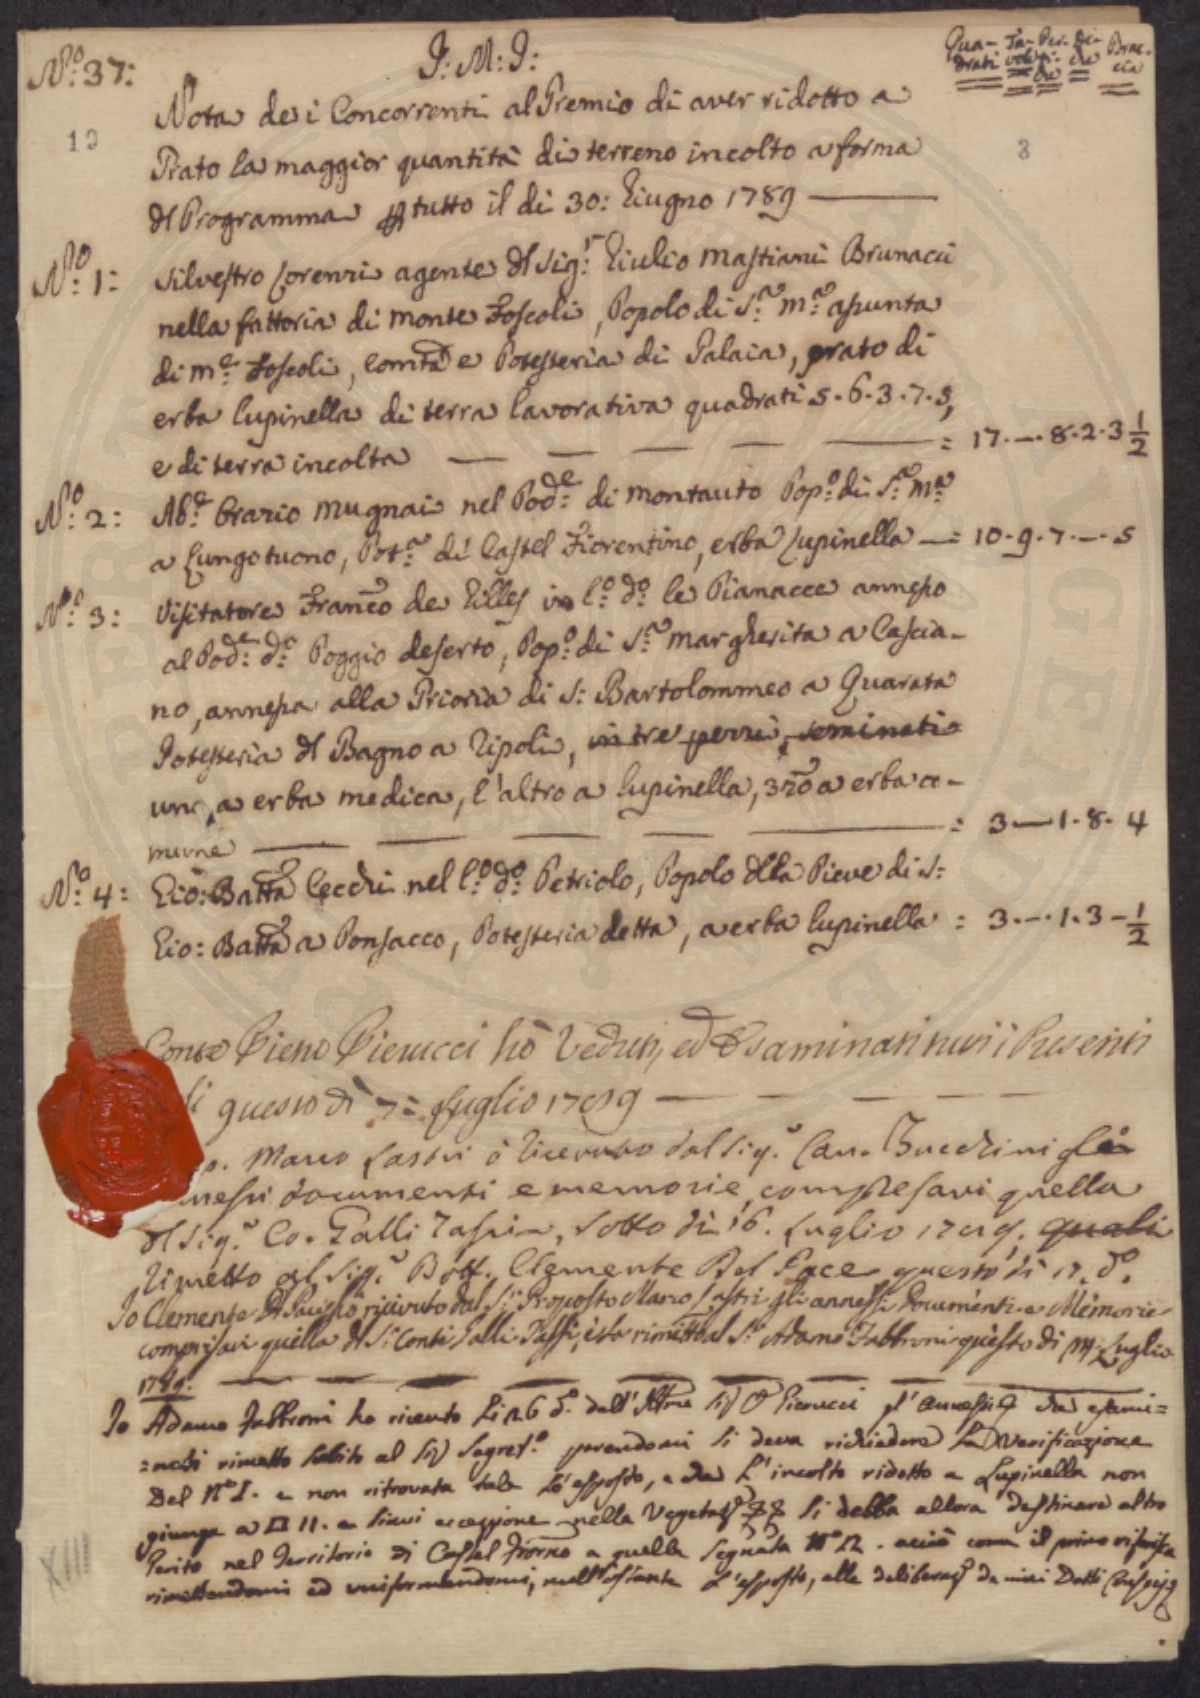 N.º 37:
J: M: J:
Qua- Ta- Per- De- Brac-
drati vole ti- che cia
che
19
3
Nota dei Concorrenti al Premio di aver ridotto a
Prato la maggior quantità di terreno incolto a forma
dl Programma p tutto il di 30: Giugno 1789
N.º 1: Silvestro Lorenzi agente dl Sig.r Giulio Mastiani Brunacci
nella fattoria di Monte Foscoli, Popolo di S.a M.a Asunta
di M.e Foscoli, Comtà e Potesteria di Palaia, prato di
erba lupinella di terra lavorativa quadrati 5.6.3.7.3,
e di terra incolta = 17.—.8.2.3 1/2
N.º 2: Ab.e Orazio Mugnai nel Pod.e di Montauto Pop.o di S.a M.a
a Lungotuono, Pot.a di Castel Fiorentino, erba Lupinella = 10.9.7.—.5
N.º 3: Visitatore Franco de Gilles in l.o d.o le Pianacce annesso
al Pod.e d.o Poggio deserto, Pop.o di S.a Margherita a Cascia-
no, annessa alla Prioria di S: Bartolommeo a Quarata
Potesteria dl Bagno a Ripoli, in tre pezzi, seminati
uno a erba medica, l'altro a lupinella, 3zo a erba co-
mune = 3—1.8.4
N.º 4: Gio: Batta Cecchi nel l.o d.o Petriolo, Popolo dlla Pieve di S:
Gio: Batta a Ponsacco, Potesteria detta, a erba lupinella = 3.—.1.3—1/2
Conte Pieno Pierucci hò Veduti, ed Esaminati tutti i Presenti
questo dì 7: Luglio 1789
Marco Lastri ò ricevuto dal Sig.r Cav. Zucchini gli
annessi documenti e memorie, compresavi quella
dl Sig.r Co. Galli Tassi, sotto dì 16. Luglio 1789. quali
rimetto al Sig.r Dott. Clemente Del Pace questo dì 17. d.o.
Io Clemente Del Pace ho ricevuto dal S.r Proposto Marco Lastri gli annessi Documenti e Memorie
compresavi quella dl S.r Conte Galli Tassi, e la rimetto al S.r Adamo Fabbroni questo di Luglio
1789.
Io Adamo Fabbroni ho ricevuto li 26 d.o dall' Sig Pierucci gl'annessi da esami=
=narsi rimetto subito al Sig Segret.o parendomi si deva richiedere la Verificazione
Del N.º I. e non ritrovata tale l'esposto, e da l'incolto ridotto a Lupinella non
giunga a 11. e siavi eccezione nella si debba allora destinare altro
Perito nel Territorio di Castel Fiorno a quella segnata N.º 2. acciò come il primo riferisca
rimettendomi ed uniformandomi, l'esposto, alle de miei Dotti
XIII